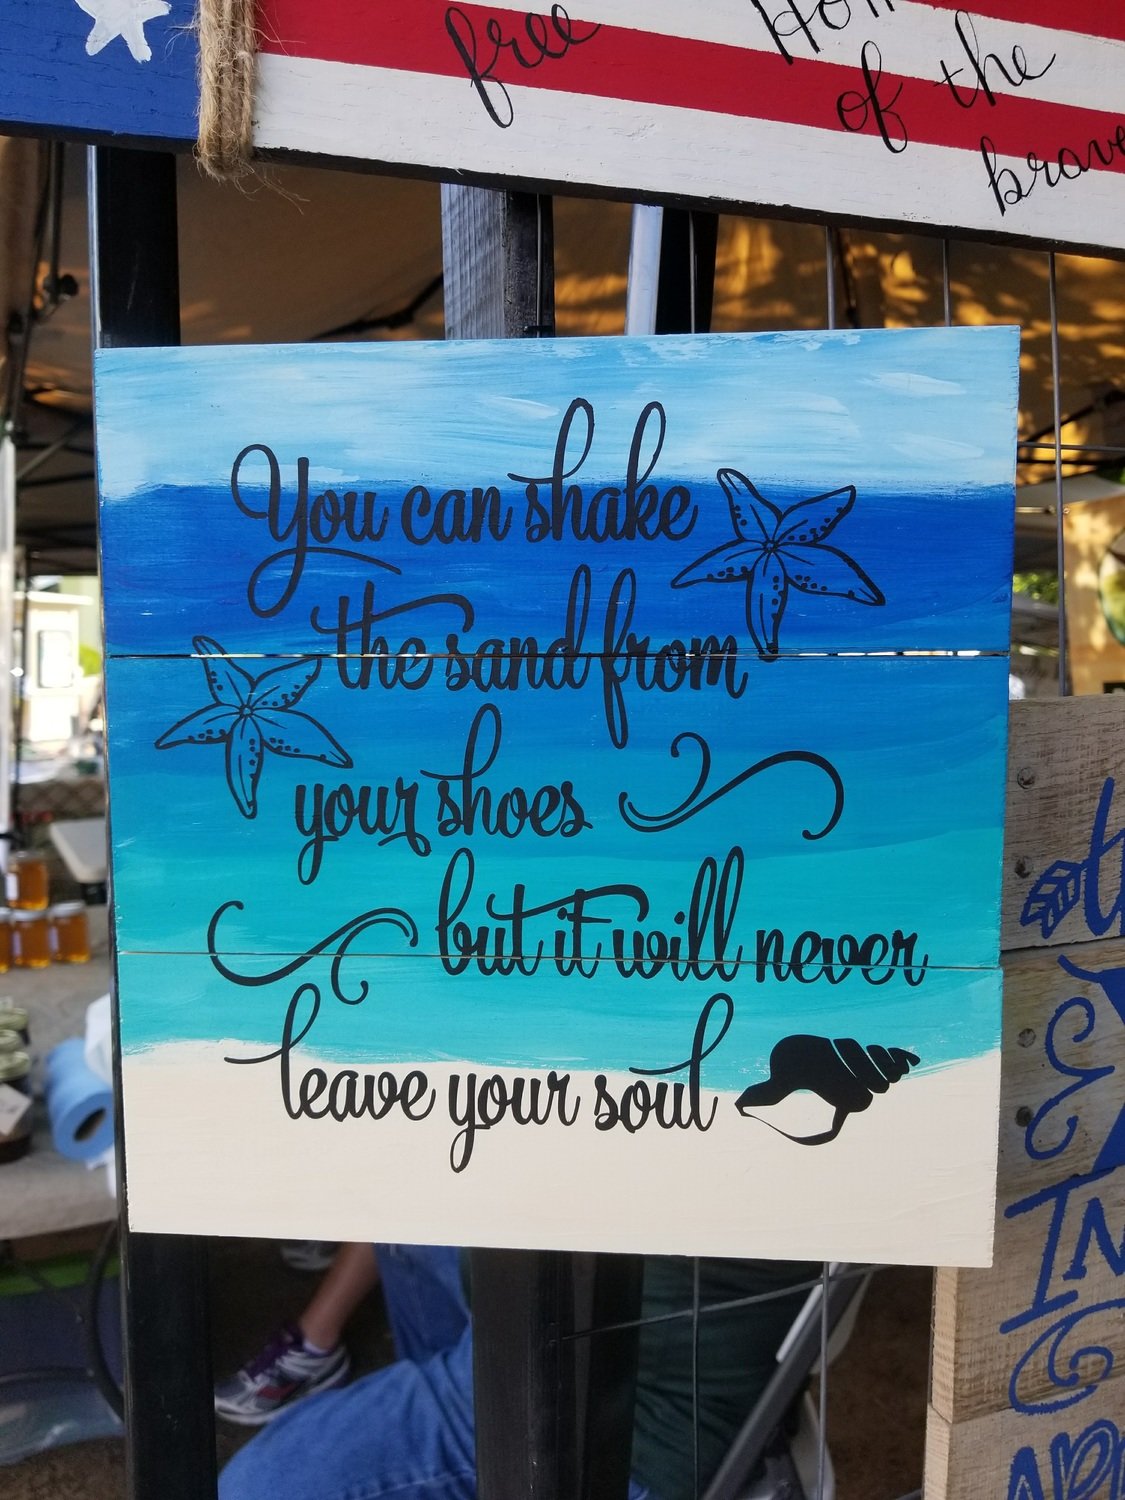 free
of the
You can shake
the sand from
your shoes
but it will never
leave your soul
IN